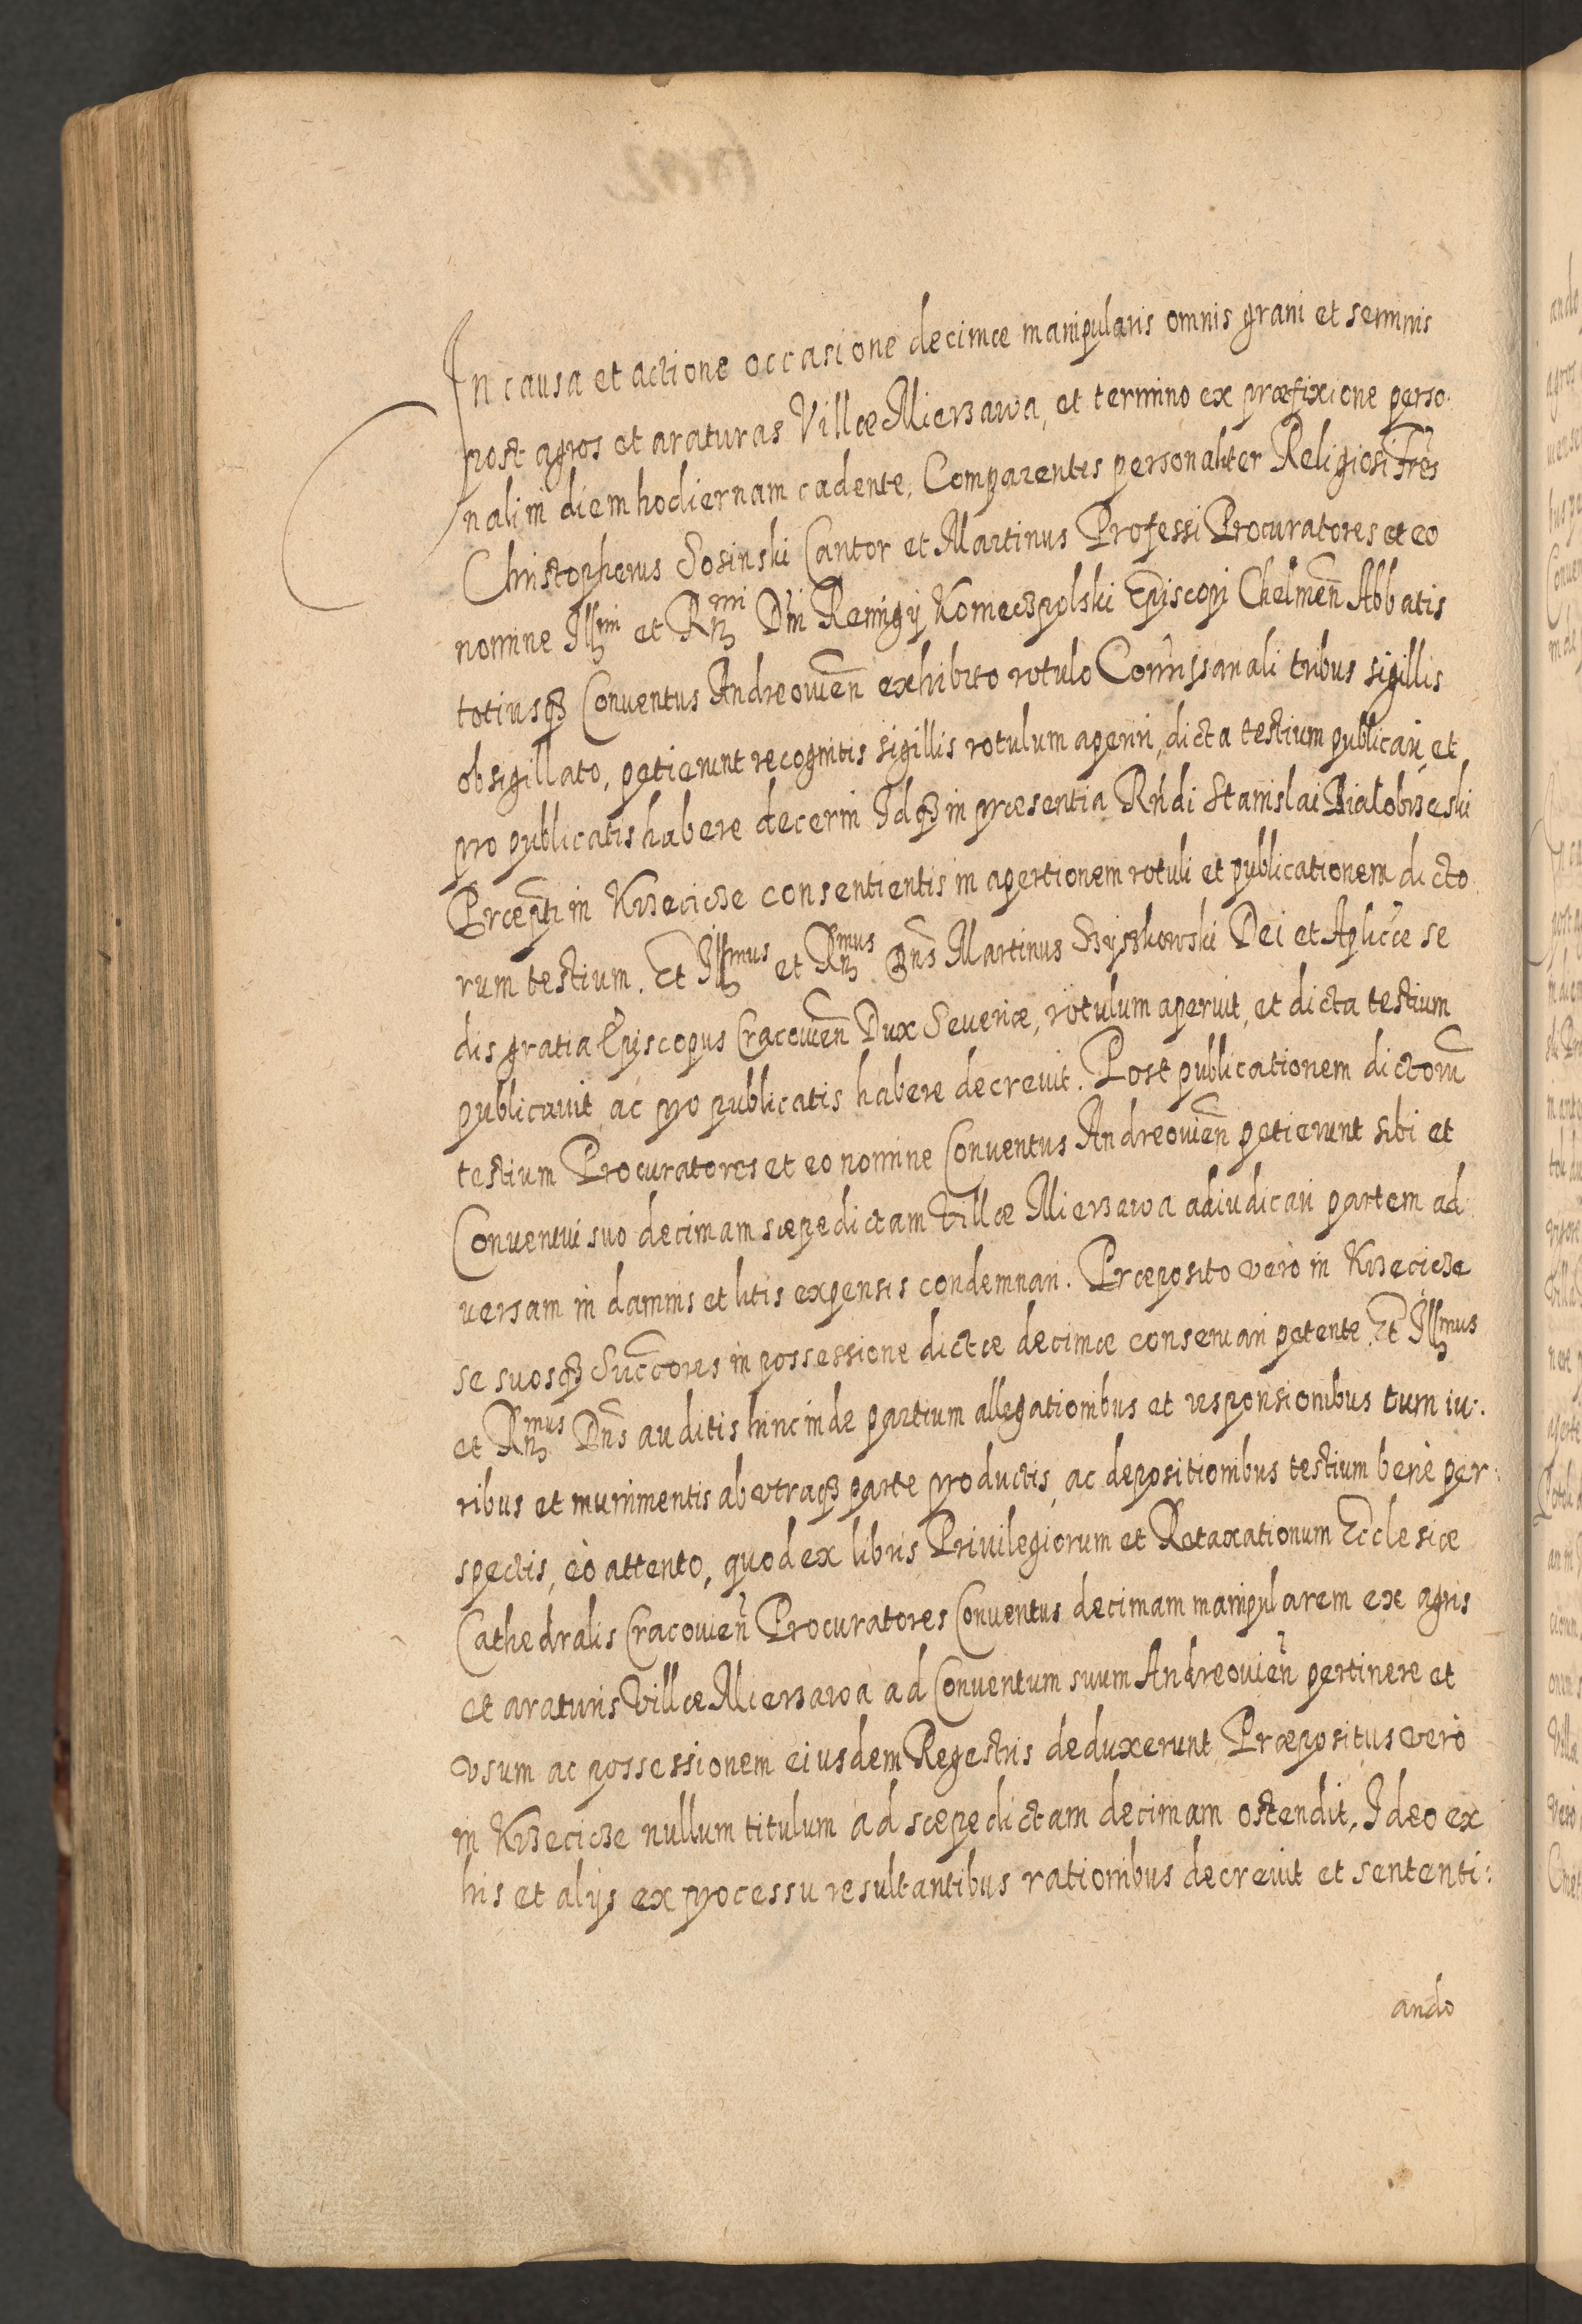 In causa et actione occasione decimæ manipularis omnis grani et seminis
post agros et araturas Villæ Mierzawa, et termino ex præfixione perso-
nali in diem hodiernam cadente, Comparentes personaliter Religiosi Frẽs
Christopherus Sosinski Cantor et Martinus Professi Procuratores et eo
nomine Illmi et Rmi Dñi Remigij Konieczpolski Episcopi Chelmeñ Abbatis
totiusq3 Conventus Andreovieñ exhibito rotulo Comissariali tribus sigillis
obsigillato, petierunt recognitis sigillis rotulum aperiri, dicta testium publicari, et
pro publicatis habere decerni Idq3 in præsentia Rñdi Stanislai Bialobrzeski
Præpti in Krzecicze consentientis in apertionem rotuli et publicationem dicto
rum testium. Et Illmus et Rmus Dñs Martinus Szyszkowski Dei et Aplicæ se
dis gratia Episcopus Cracovieñ Dux Severiæ, rotulum aperuit, et dicta testium
publicavit, ac pro publicatis habere decrevit. Post publicationem dictorũ
testium Procuratores et eo nomine Conventus Andreovieñ petierunt sibi et
Conventui suo decimam sæpedictam Villæ Mierzawa adiudicari partem ad
versam in damnis et litis expensis condemnari. Præposito verò in Krzecicze
se suosq3 Succores in possessione dictæ decimæ conservari petente. Et Illmus
et Rmus Dñs auditis hinc inde partium allegationibus et responsionibus tum iu:
ribus et munimentis ab vtraq3 parte productis, ac depositionibus testium benè per:
spectis, eò attento, quod ex libris Privilegiorum et Retaxationum Ecclesiæ
Cathedralis Cracovieñ Procuratores Conventus decimam manipularem ex agris
et araturis Villæ Mierzawa ad Conventum suum Andreovieñ pertinere et
vsum ac possessionem eiusdem Regestris deduxerunt, Præpositus verò
in Krzecicze nullum titulum ad sæpedictam decimam ostendit, Ideo ex
his et alijs ex processu resultantibus rationibus decrevit et sententi:
ando